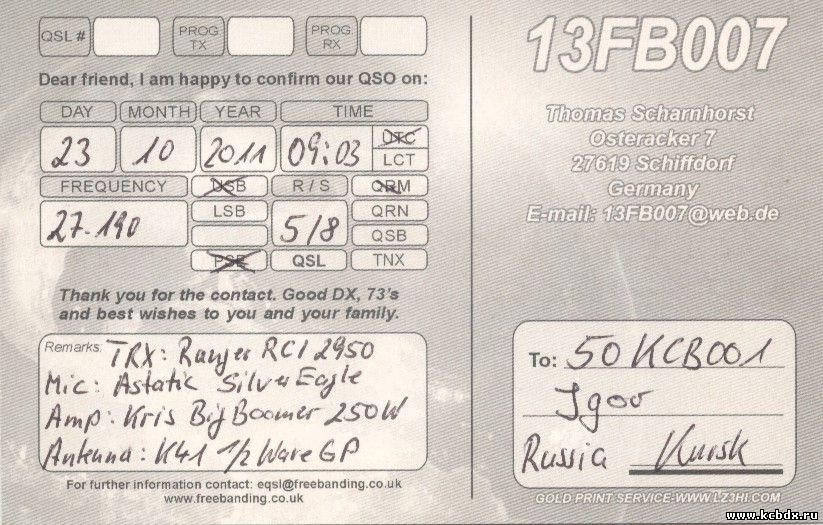 QSL # PROG TX PROG. RX
Dear friend, I am happy to confirm our QSO on:
DAY MONTH YEAR TIME
23 10 2011 09:03 UTC
LCT
FREQUENCY USB R / S QRM
27.190 LSB 5/8 QRN
QSB
PSE QSL TNX
Thank you for the contact. Good DX, 73's
and best wishes to you and your family.
Remarks: TRX: Ranger RCI 2950
Mic: Astatic Silver Eagle
Amp: Kris Big Boomer 250W
Antenna: K41 1/2 Wave GP
For further information contact: eqsl@freebanding.co.uk
www.freebanding.co.uk
13FB007
Thomas Scharnhorst
Osteracker 7
27619 Schiffdorf
Germany
E-mail: 13FB007@web.de
To: 50KCB001
Igor
Russia Kursk
GOLD PRINT SERVICE-WWW.LZ3HI.COM
www.kcbdx.ru